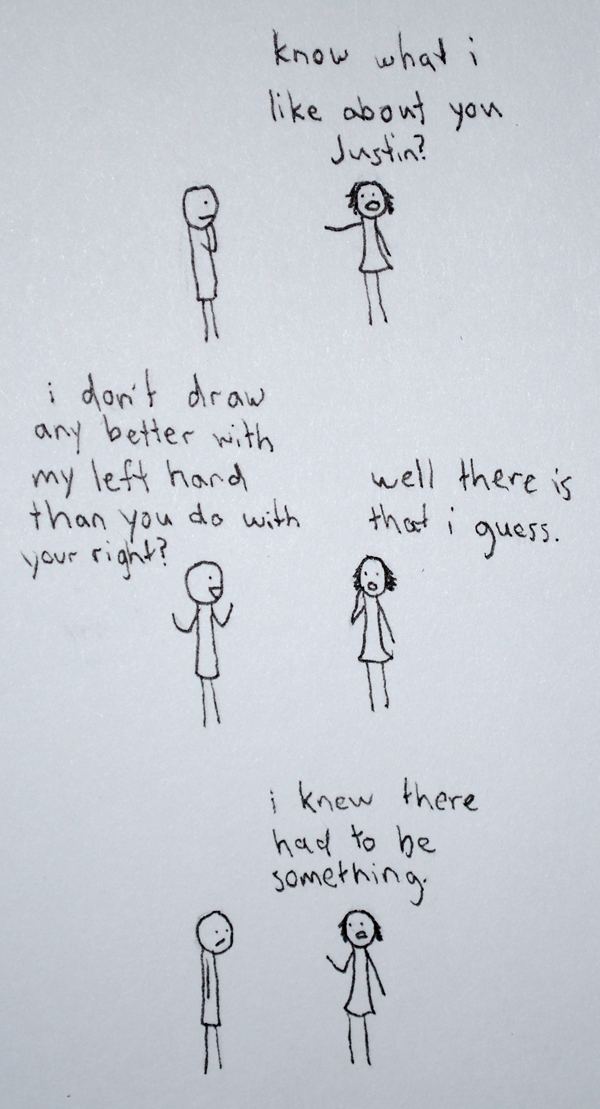 know what i
like about you
Justin?
i don't draw
any better with
my left hand
than you do with
your right?
well there is
that i guess.
i knew there
had to be
something.